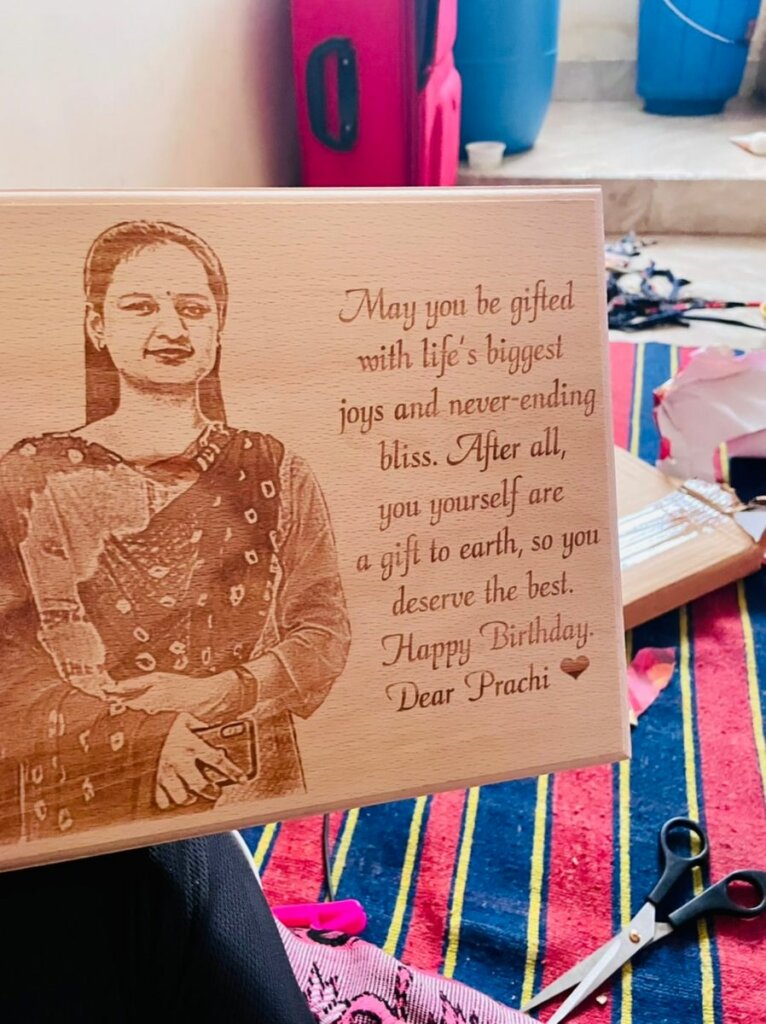 May you be gifted
with life's biggest
joys and never-ending
bliss. After all,
you yourself are
a gift to earth, so you
deserve the best.
Happy Birthday.
Dear Prachi ♥